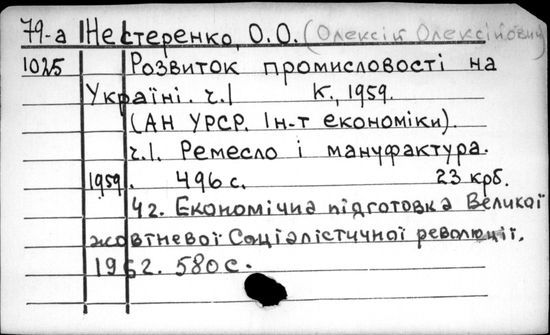 79-а Нестеренко, О.О. (Олексій Олексійович)
1025 Розвиток промисловості на
Україні. ч.1 К., 1959.
(АН УРСР. Ін-т економіки).
ч.1. Ремесло і мануфактура.
1959. 496 с. 23 крб.
Ч 2. Економічна підготовка Великої
жовтневої Соціалістичної революції.
1962. 580 с.